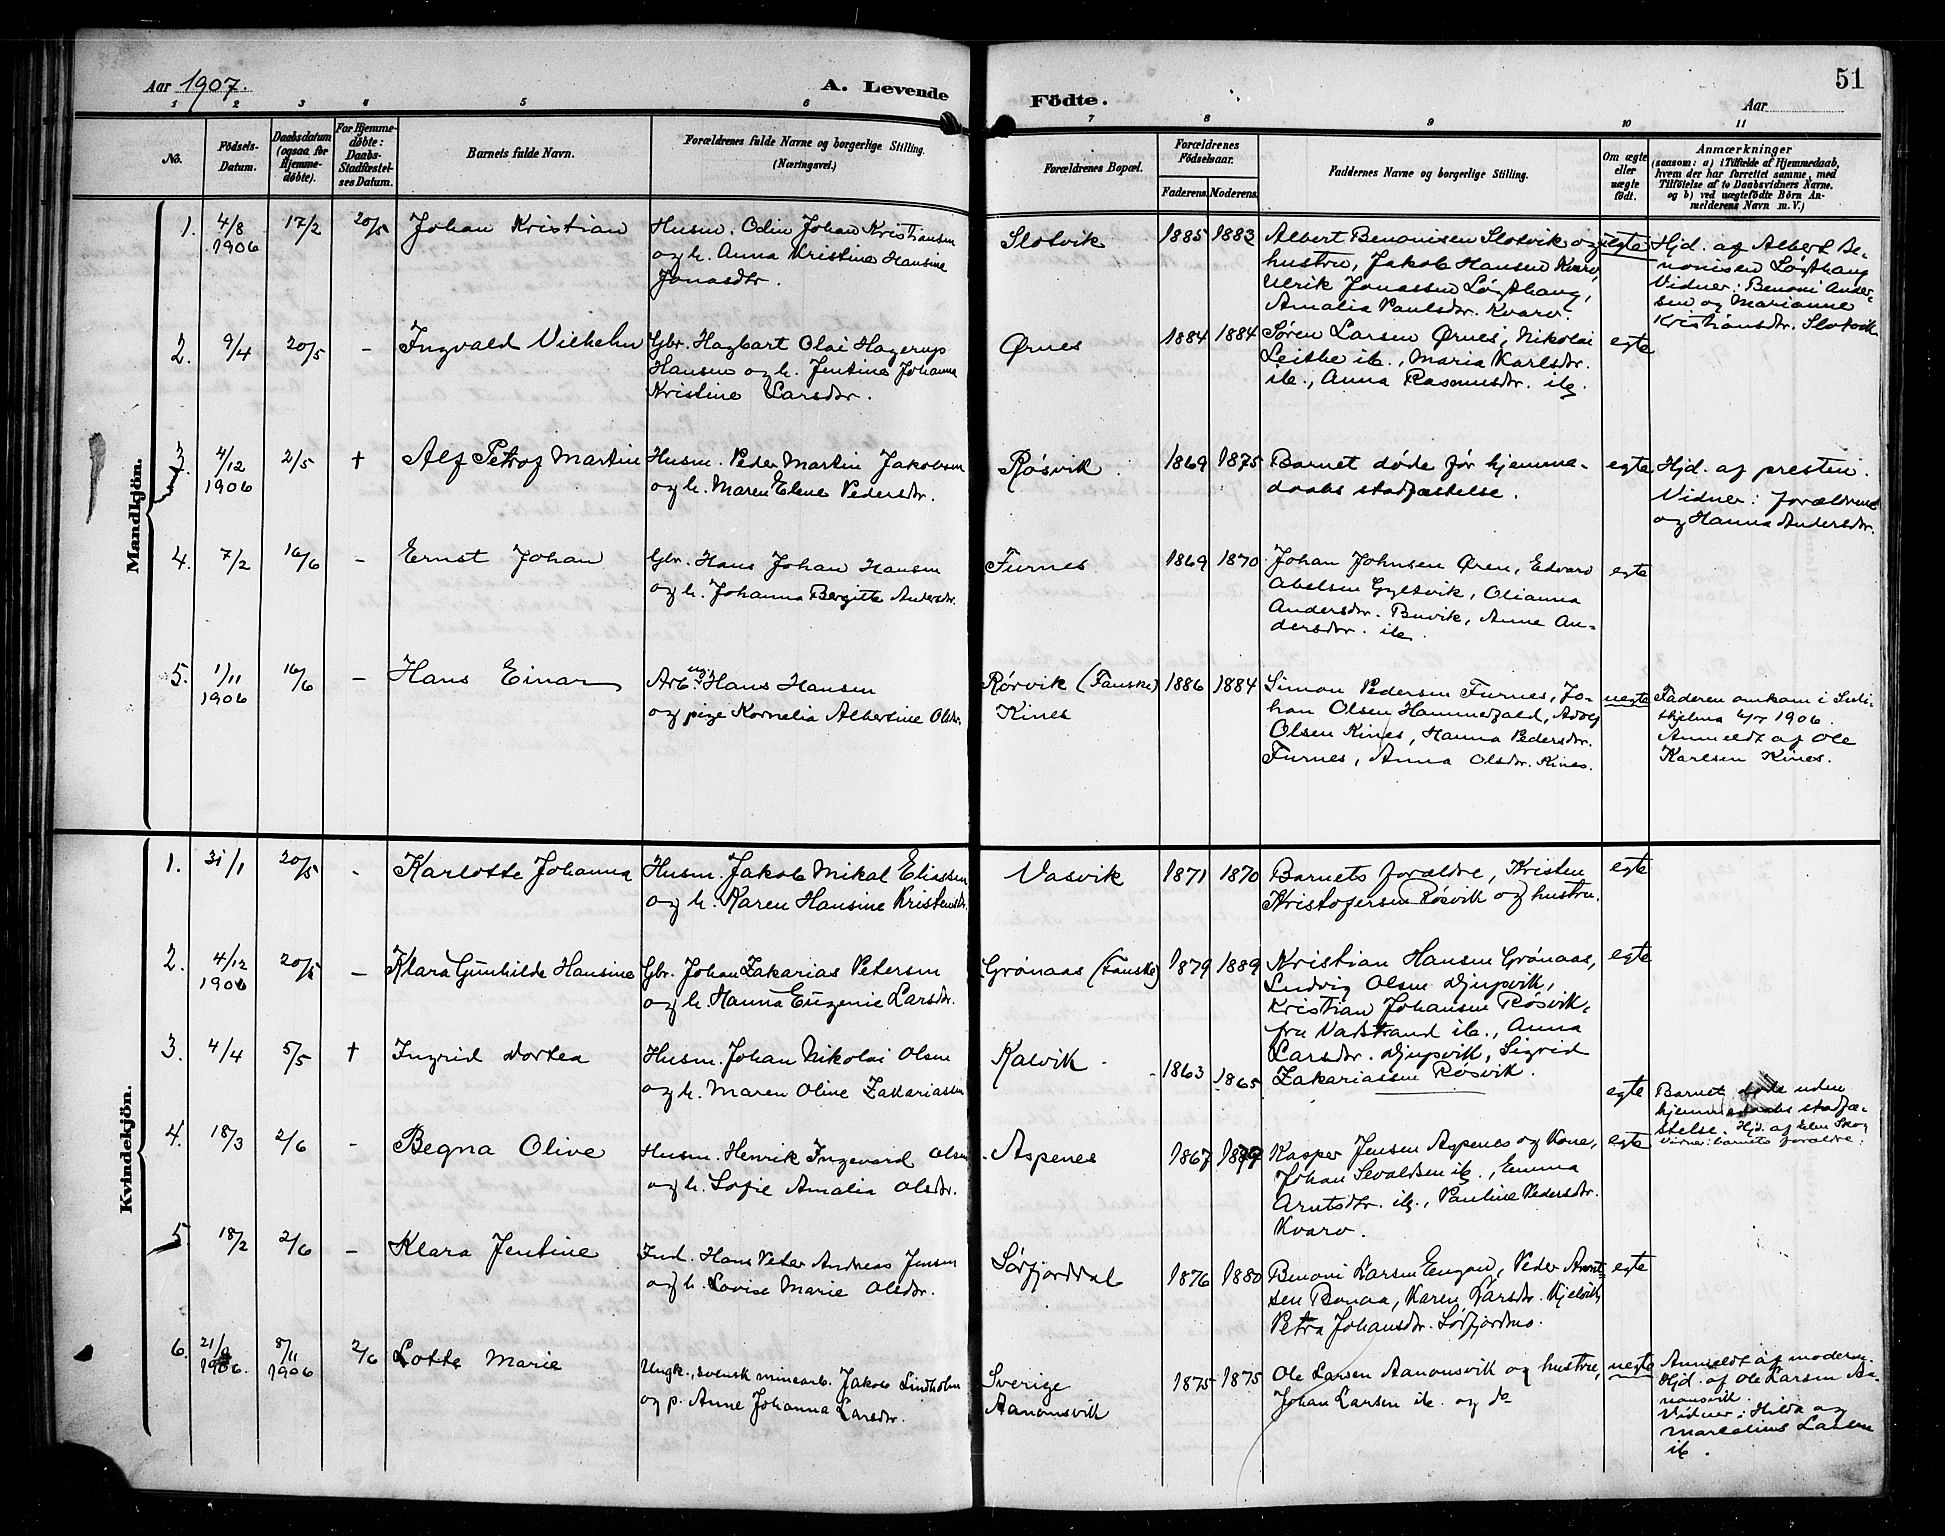 51
Aar 1907.
A. Levende
Födte.
Aar
1 2 3 4 5 6 7 8 9 10 11
No.
Födsels-
Datum.
Daabsdatum
(ogsaa for
Hjemme-
döbte).
For Hjemme-
döbte:
Daabs-
Stadfæstel-
ses Datum.
Barnets fulde Navn.
Forældrenes fulde Navne og borgerlige Stilling.
(Næringsvei.)
Forældrenes Bopæl.
Forældrenes
Födselsaar.
Faderens. Moderens.
Faddernes Navne og borgerlige Stilling.
Om ægte
eller
uægte
födt.
Anmærkninger
(saasom: a) i Tilfælde af Hjemmedaab,
hvem der har forrettet samme, med
Tilföielse af to Daabsvidners Navne.
og b) ved uægtefödte Börn An-
melderens Navn m. V.)
Mandkjön.
1. 4/8 1906 17/2 20/5 Johan Kristian
Husm. Odin Johan Kristiansen
og h. Anna Kristine Hansine
Jonasdtr.
Slotvik 1885 1883
Albert Benonisen Slotvik og
hustru, Jakob Hansen Kvarv
Ulrik Jonassen Løgthaug,
Amalia Paulsdtr. Kvarv.
egte
Hjd. af Albert Be-
nonisen Løgthaug
Vidner: Benoni Ander-
sen og Marianne
Kristiansdtr. Slotvik
2. 9/4 20/5 - Ingvald Vilhelm
Gbr. Hagbart Olai Hagerup
Hansen og h. Jentine Johanna
Kristine Larsdtr.
Ørnes 1884 1884
Søren Larsen Ørnes, Nikolai
Leithe ib., Maria Karlsdtr.
ib., Anna Rasmusdtr. ib.
egte
3. 4/12 1906 2/5 † Alf Petrof Martin
Husm. Peder Martin Jakobsen
og h. Maren Elene Pedersdtr.
Røsvik 1869 1875
Barnet døde før hjemme-
daabs stadfæstelse.
egte
Hjd. af presten.
Vidner: forældrene
og Hanna Andersdtr.
4. 7/2 16/6 - Ernst Johan
Gbr. Hans Johan Hansen
og h. Johanna Bergitte Andersdtr.
Furnes 1869 1870
Johan Johnsen Øren, Edvard
Abelsen Gyltvik, Olianna
Andersdtr. Buvik, Anne An-
dersdtr. ib.
egte
5. 1/11 1906 16/6 - Hans Einar
Arb. ug. Hans Hansen
og pige Kornelia Albertine Olsdtr.
Rørvik (Fauske)
Kines
1886 1884
Simon Pedersen Furnes, Jo-
han Olsen Hammerfald, Adolf
Olsen Kines, Hanna Pedersdtr.
Furnes, Anna Olsdtr. Kines.
uegte
Faderen omkom i Suli-
thjelma 1906.
Anmeldt af Ole
Karlsen Kines.
Kvindekjön.
1. 31/1 20/5 - Karlotte Johanna
Husm. Jakob Mikal Eliassen
og h. Karen Hansine Kristensdtr.
Vasvik 1871 1870
Barnets forældre, Kristen
Kristofersen Røsvik og hustru.
egte
2. 4/12 1906 20/5 - Klara Gunhilde Hansine
Gbr. Johan Zakarias Petersen
og h. Hanna Eugenie Larsdtr.
Grønaas (Fauske) 1879 1889
Kristian Hansen Grønaas,
Ludvig Olsen Djupvik,
Kristian Johansen Røsvik,
fru Vadstrand ib., Anna
Larsdtr. Djupvik, Sigrid
Zakariassen Røsvik.
egte
3. 4/4 5/5 † Ingrid Dortea
Husm. Johan Nikolai Olsen
og h. Maren Oline Zakariassen
Kalvik 1863 1865
egte
Barnet døde uden
hjemmedaabs stadfæ-
stelse. Hjd. af Elen Skog
Vidner: barnets forældre.
4. 18/3 2/6 - Begna Olive
Husm. Henrik Ingevard Olsen
og h. Sofie Amalia Olsdtr.
Aspenes 1867 1879
Kasper Jensen Aspenes og Kone,
Johan Sevaldsen ib., Emma
Arntsdtr. ib., Pauline Pedersdtr.
Kvarv.
egte
5. 18/2 2/6 - Klara Jentine
Ind. Hans Peter Andreas Jensen
og h. Lovise Marie Olsdtr.
Sørfjorddal 1876 1880
Benoni Larsen Engan, Peder Arnt-
sen Bonaa, Karen Larsdtr. Kjelvik,
Petra Johansdtr. Sørfjordmo.
egte
6. 21/9 1906. 8/11 1906 2/6 Lotte Marie
Ungk., svensk minearb. Jakob Lindholm
og p. Anne Johanna Larsdtr.
Sverige
Aanonsvik
1875 1875
Ole Larsen Aanonsvik og hustru,
Johan Larsen ib. og do
uegte
Anmeldt af moderen.
Hjd. af Ole Larsen Aa-
nonsvik.
Vidner: Hilda og
Marcelius Larsen
ib.